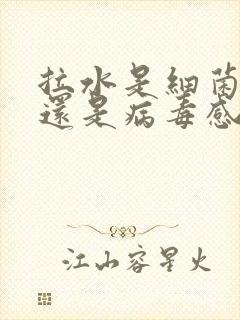 拉水是細菌
還是病毒感
江山容星火